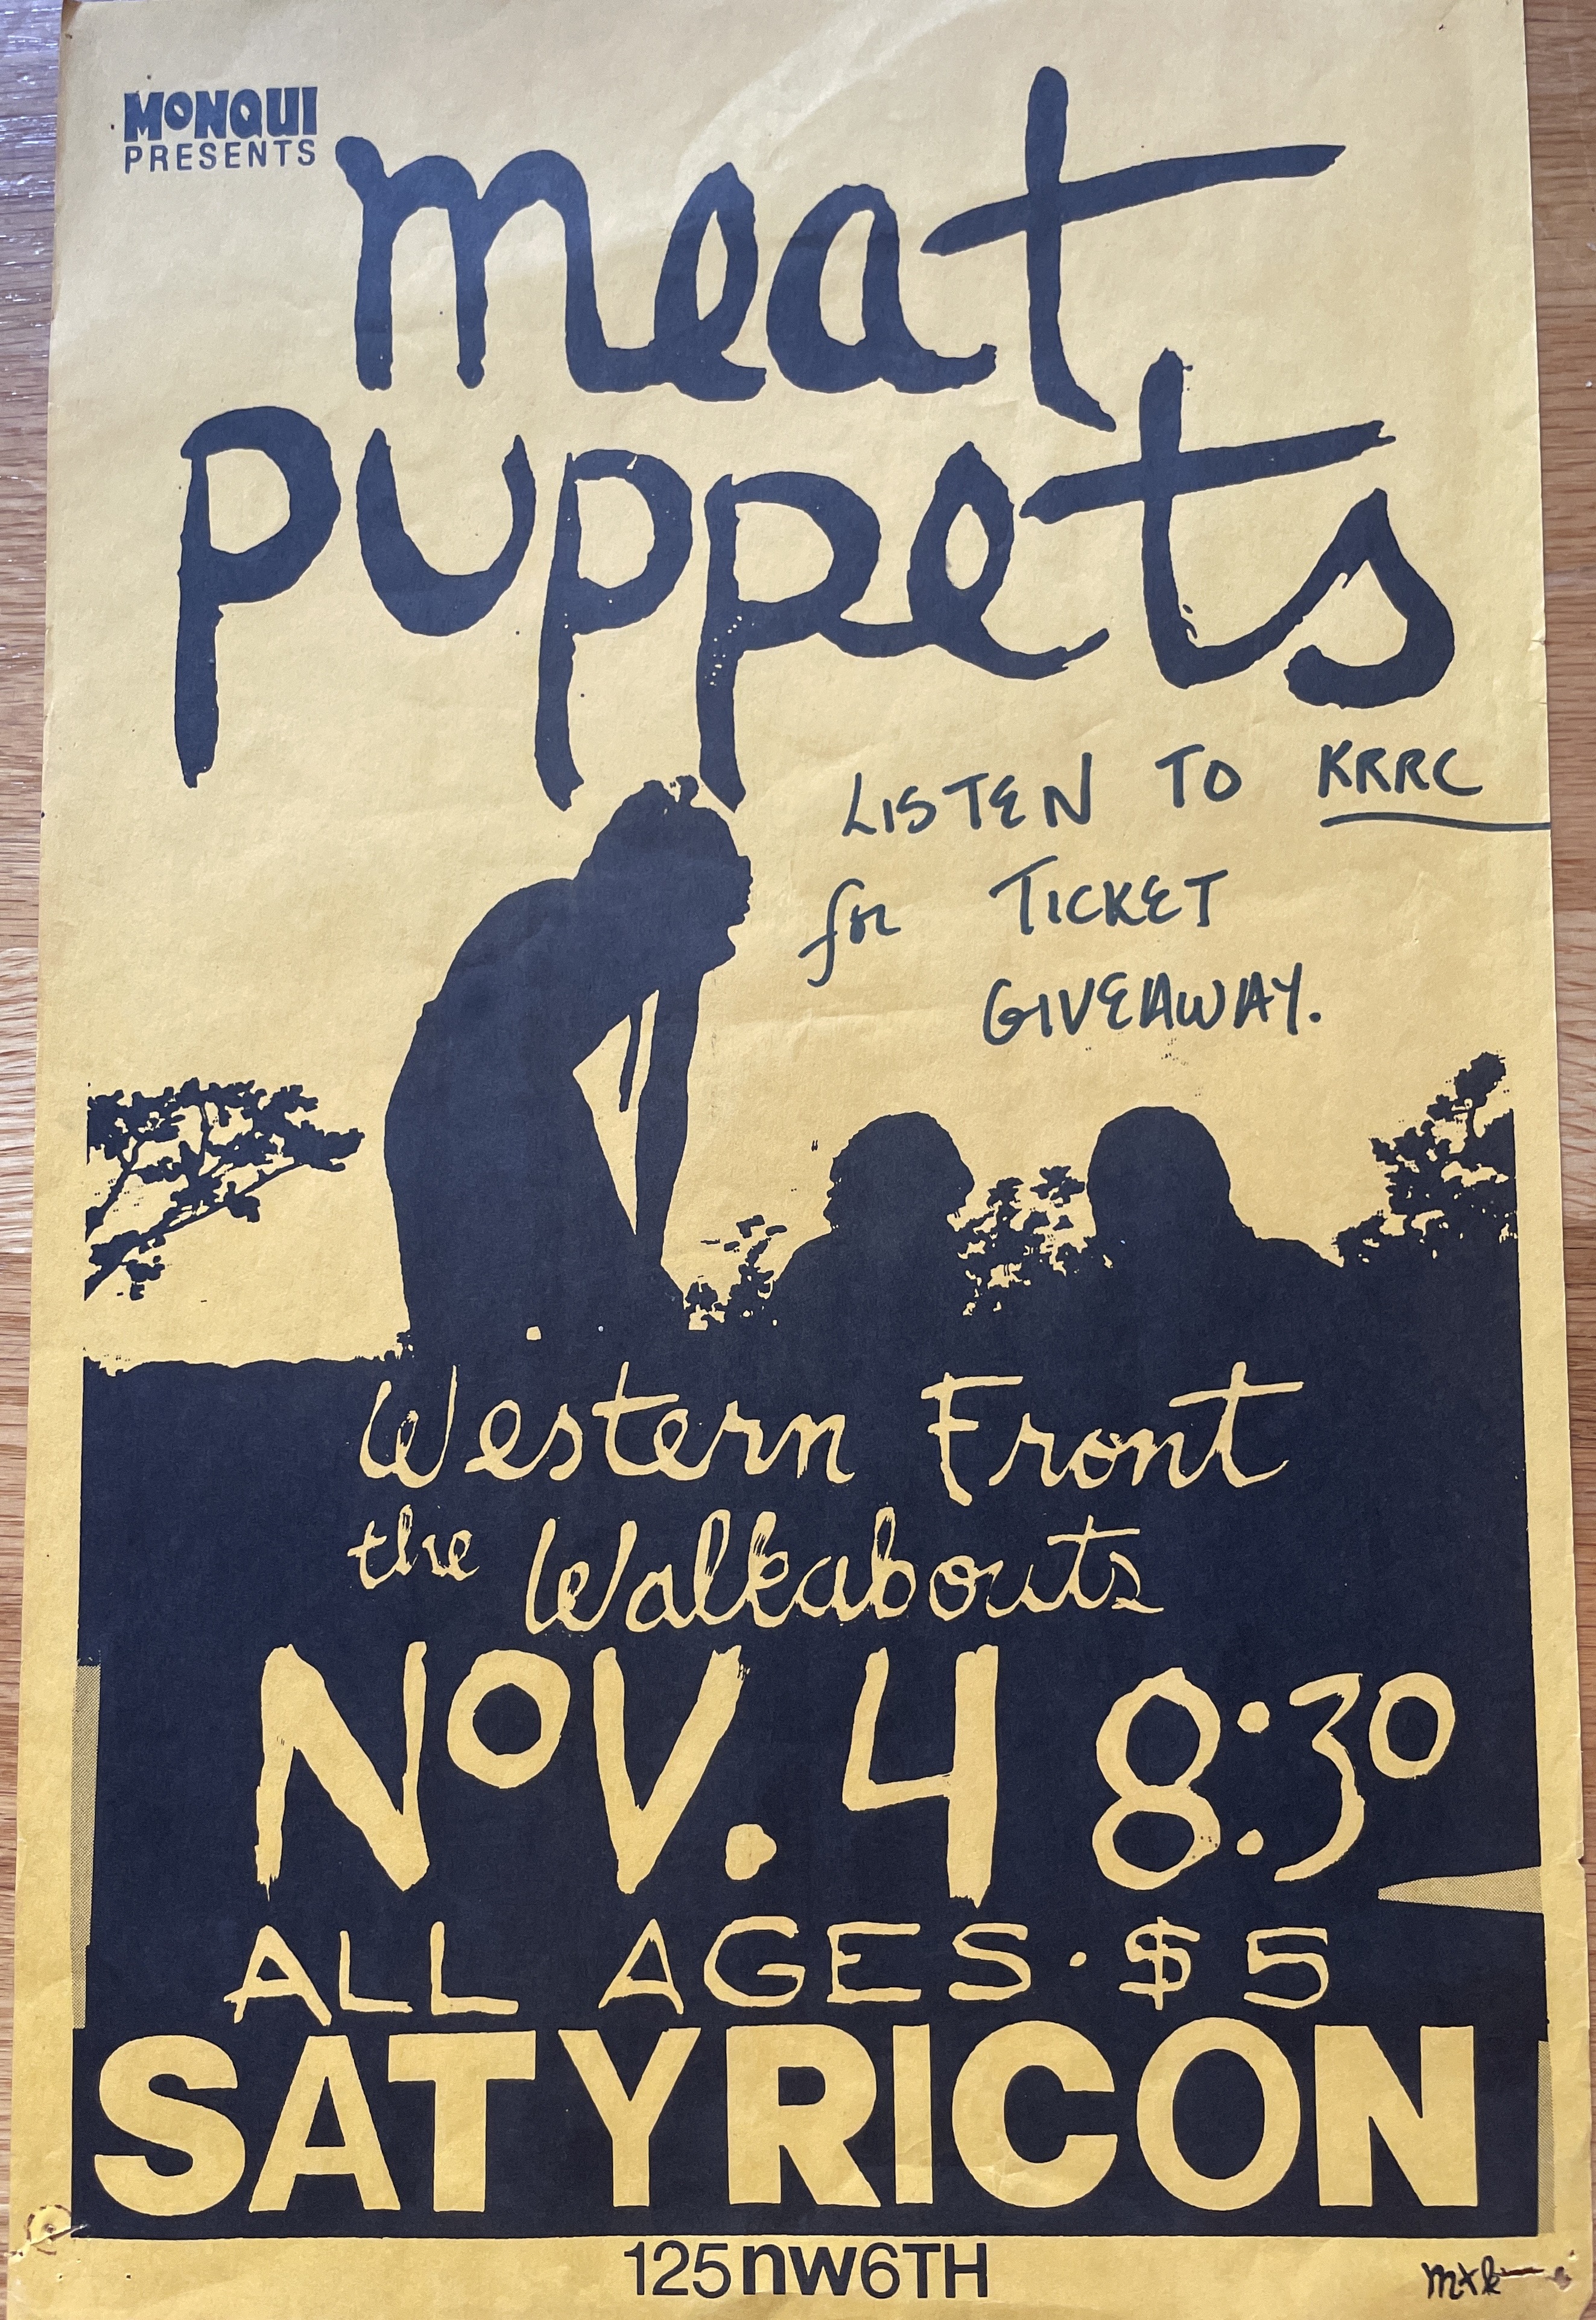 MONQUI
PRESENTS
meat
puppets
LISTEN TO KRRC
for TICKET
GIVEAWAY.
Western Front
the Walkabouts
NOV. 4 8:30
ALL AGES · $5
SATYRICON
125 nw 6TH